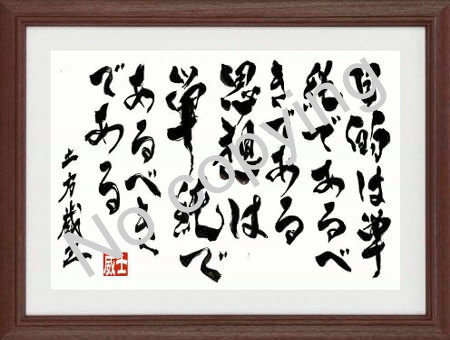 目的は単
純であるべ
きである
思想は
単純で
あるべき
である
土方歳三
No copying